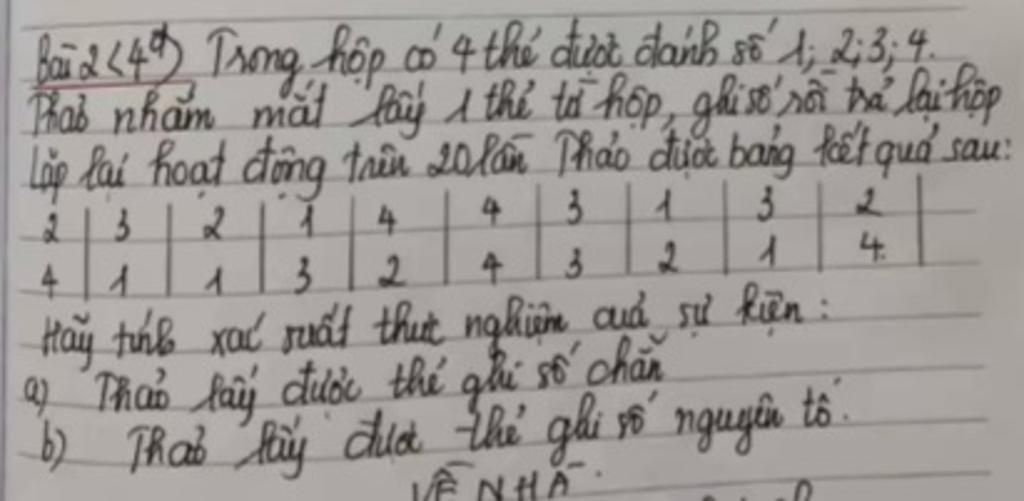 Bài 2 (4đ) Trong hộp có 4 thẻ được đánh số 1; 2; 3; 4.
Thảo nhắm mắt lấy 1 thẻ từ hộp, ghi số rồi trả lại hộp
Lặp lại hoạt động trên 20 lần Thảo được bảng kết quả sau:
2 3 2 1 4 4 3 1 3 2
4 1 1 3 2 4 3 2 1 4
Hãy tính xác suất thực nghiệm của sự kiện:
a) Thảo lấy được thẻ ghi số chẵn
b) Thảo lấy được thẻ ghi số nguyên tố.
VỀ NHÀ